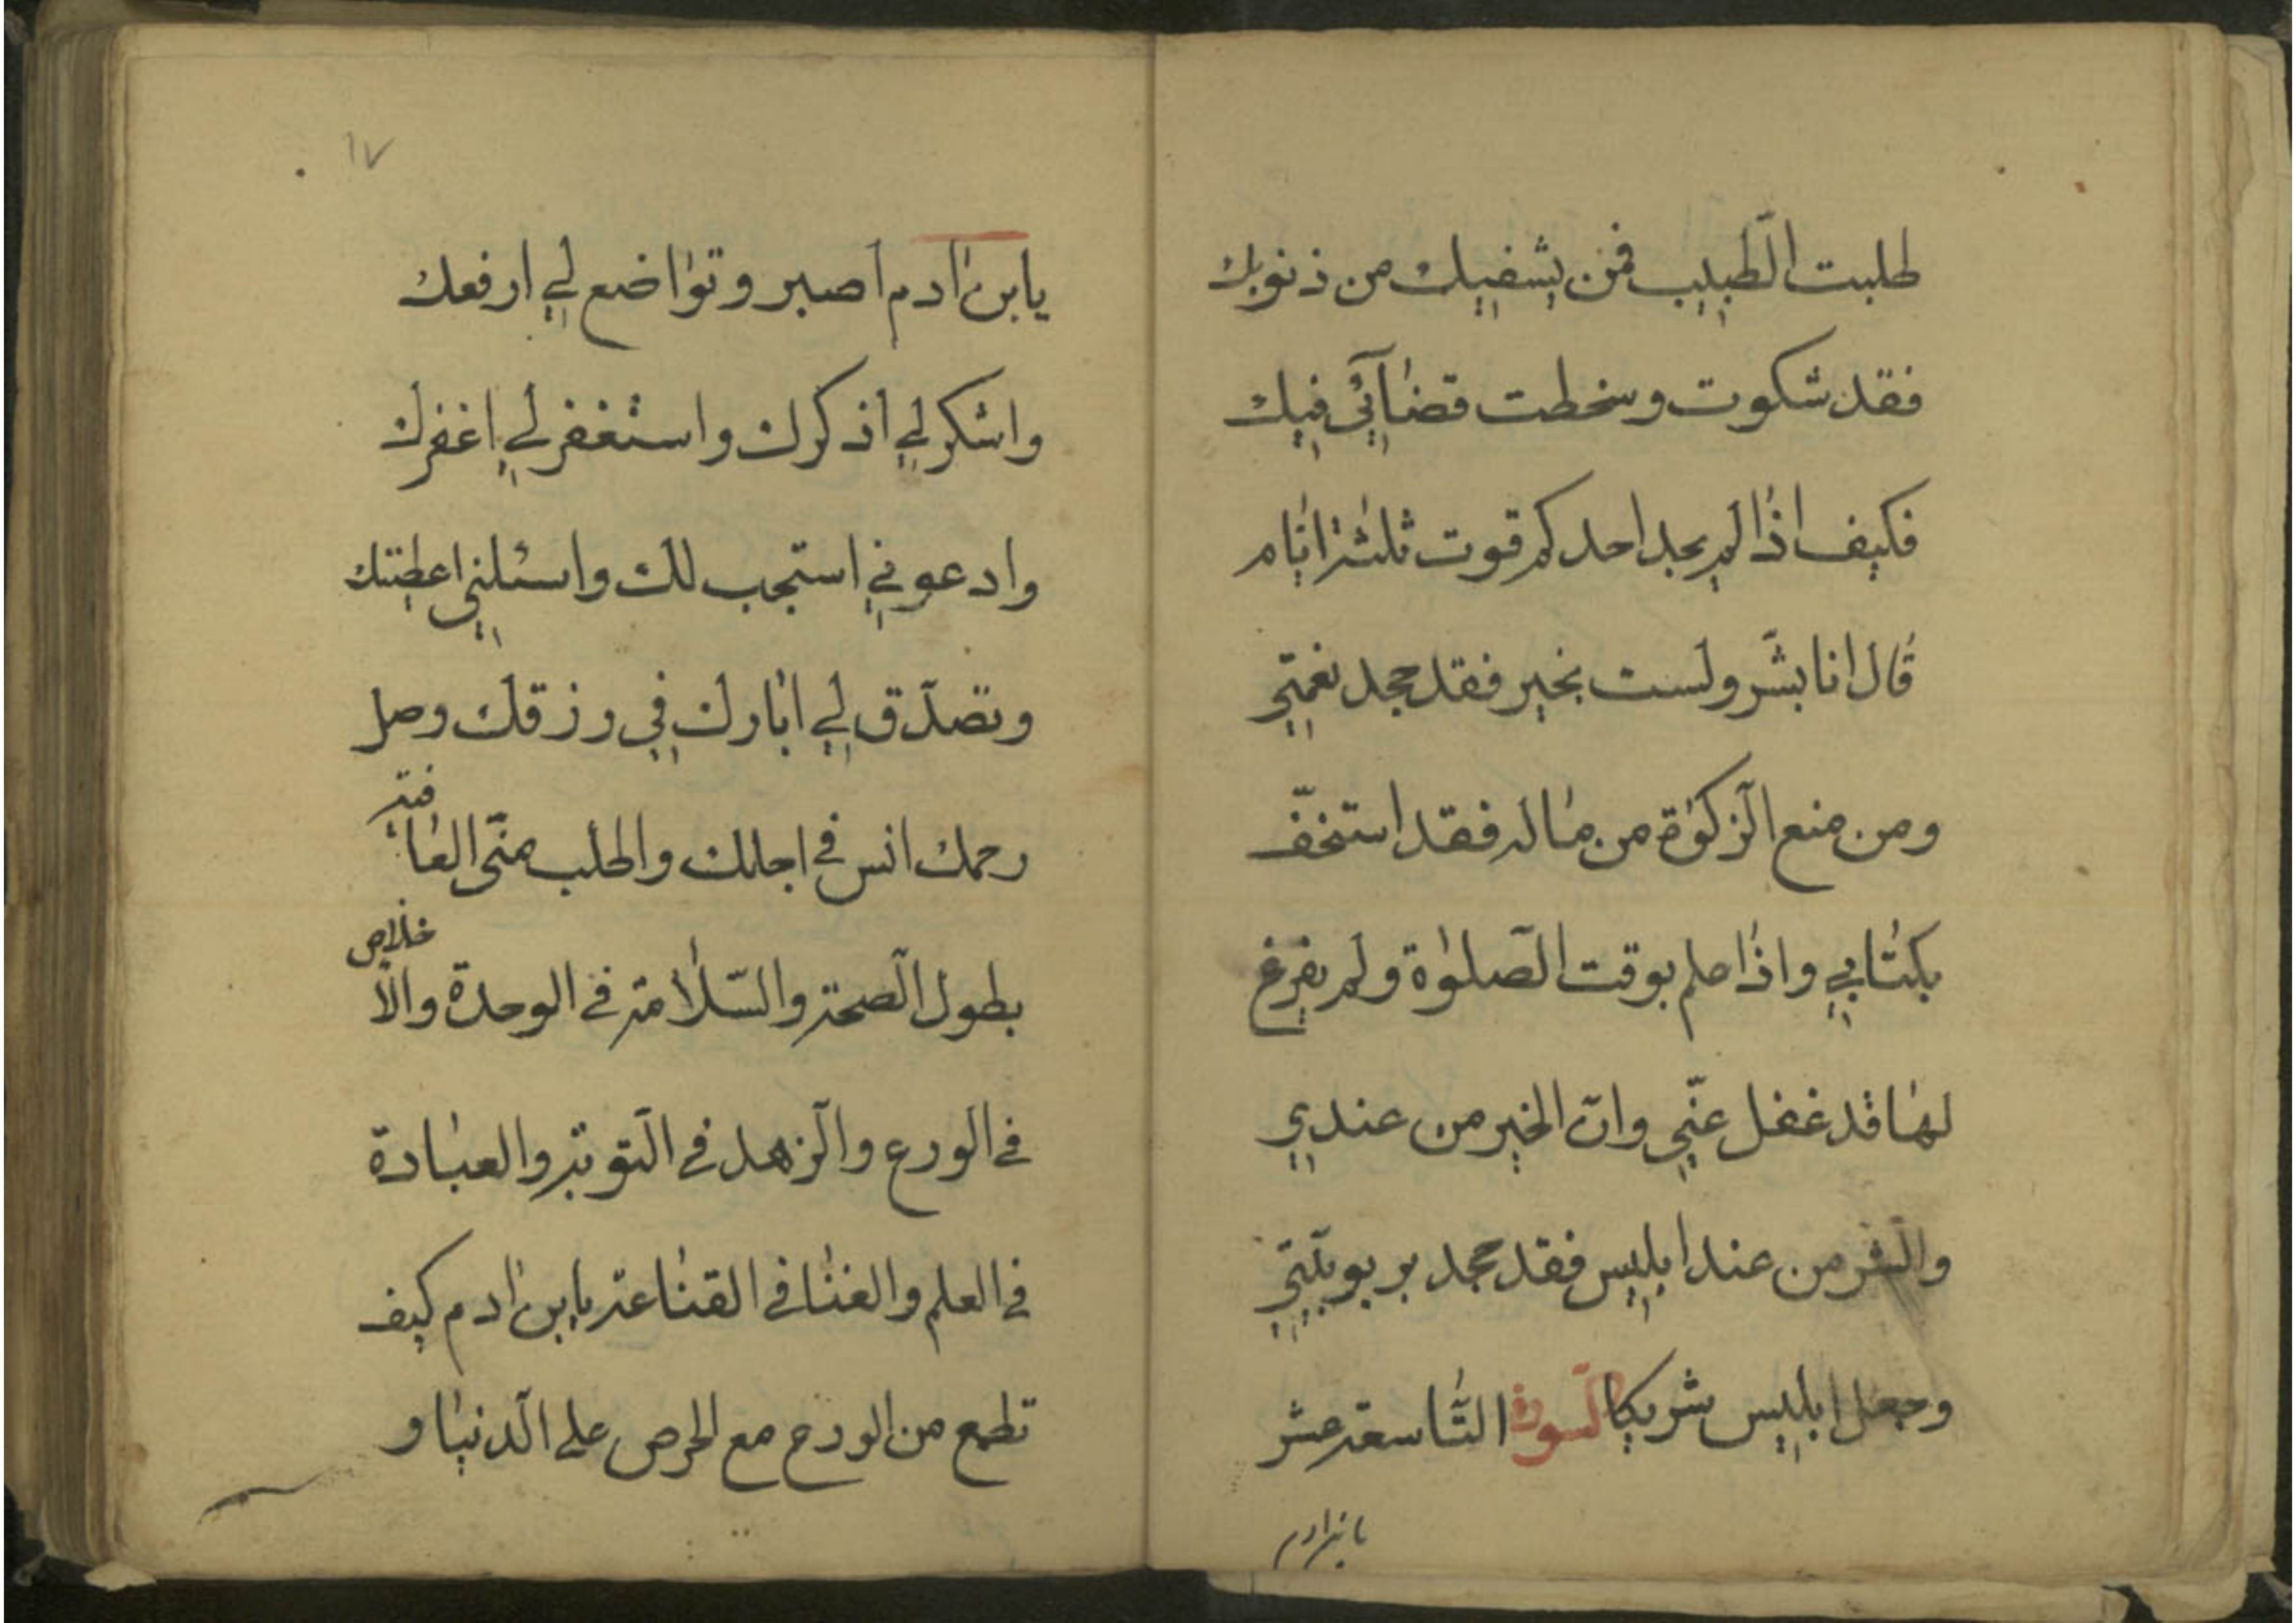 طلبت الطّبيب فمن يشفيك من ذنوبك
فقد شكوت وسخطت قضائي فيك
فكيف اذا لم يجد احدكم قوت ثلثة ايّام
قال انا بشر ولست بخير فقد جحد نعمتي
ومن منع الزّكوة من ماله فقد استخفّ
بكتابي واذا علم بوقت الصّلوة ولم يفرغ
لها قد غفل عنّي وانّ الخير من عندي
والشّر من عند ابليس فقد جحد بربوبيّتي
وجعل ابليس شريكا السّورة التّاسعة عشر
يا بن ادم
١٧
يابن ادم اصبر وتواضع لي ارفعك
واشكر لي اذكرك واستغفر لي اغفرك
وادعوني استجب لك واسئلني اعطيتك
وتصدّق لي ابارك في رزقك وصل
رحمك انس في اجلك واطلب منّي العافية
بطول الصّحة والسّلامة في الوحدة والاخلاص
في الورع والزّهد في التّوبة والعبادة
في العلم والغنا في القناعة يابن ادم كيف
تطمع من الورع مع الحرص على الدّنيا و